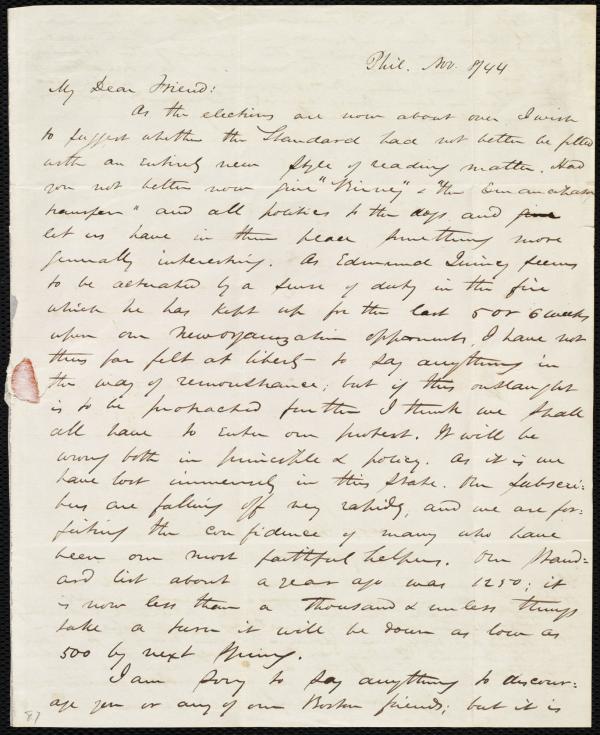 Phil. Nov. 8/44
My Dear Friend:
As the elections are now about over I wish
to suggest whether the Standard had not better be filled
with an entirely new style of reading matter. Had
you not better now give "Birney" & "the Emancipator
transfer" and all politics to the dogs, and give
let us have in their place something more
generally interesting. As Edmund Quincy seems
to be actuated by a sense of duty in the fire
which he has kept up for the last 5 or 6 weeks
upon our new organization opponents, I have not
thus far felt at liberty to say anything in
the way of remonstrance; but if this onslaught
is to be protracted further I think we shall
all have to enter our protest. It will be
wrong both in principle & policy. As it is we
have lost immensely in this State. Our subscri-
bers are falling off very rapidly, and we are for-
feiting the confidence of many who have
been our most faithful helpers. Our Stand-
ard list about a year ago was 1250; it
is now less than a thousand & unless things
take a turn it will be down as low as
500 by next Spring.
I am sorry to say anything to discour-
age you or any of our Boston friends; but it is
87